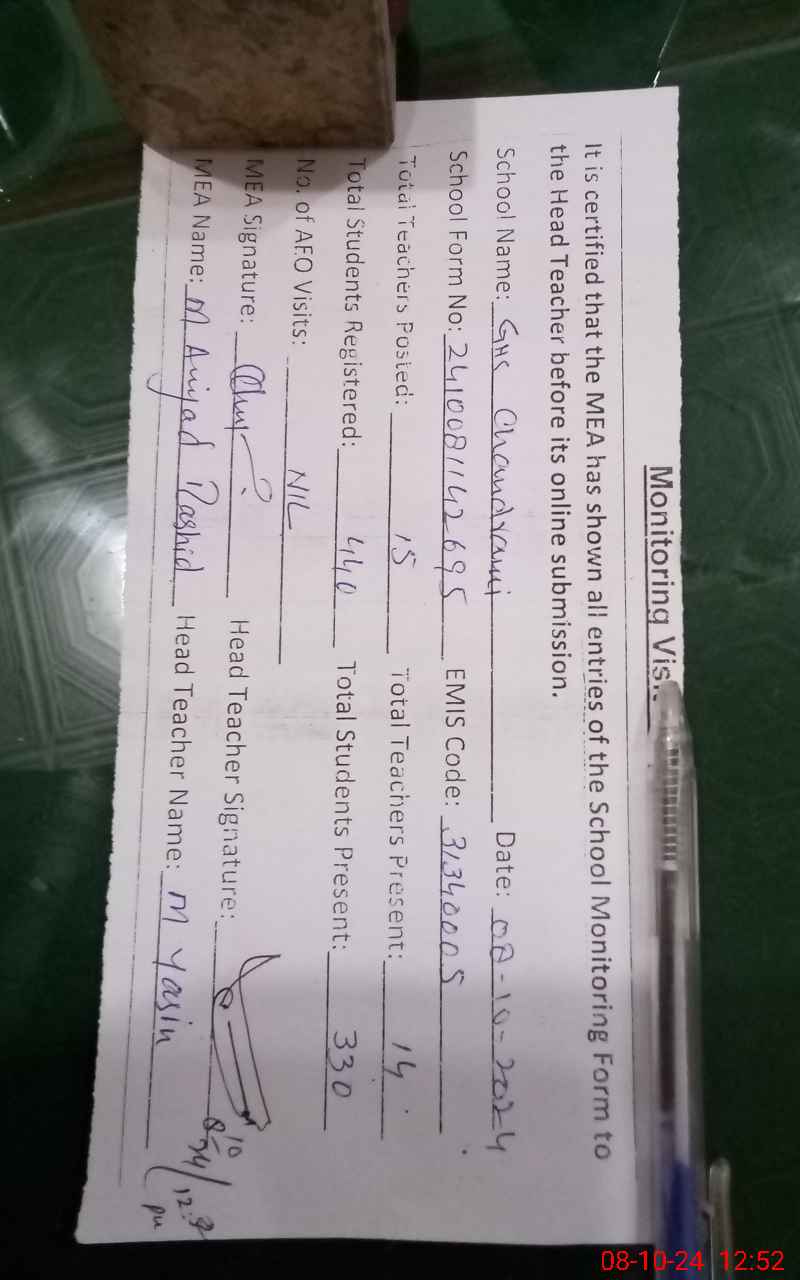 Monitoring Vis
It is certified that the MEA has shown all entries of the School Monitoring Form to
the Head Teacher before its online submission.
School Name: GHS Chandrami Date: 08-10-2024
School Form No: 2410081142695 EMIS Code: 31340005
Total Teachers Posted: 15 Total Teachers Present: 14
Total Students Registered: 440 Total Students Present: 330
No. of AEO Visits: NIL
MEA Signature: Head Teacher Signature:
MEA Name: M Amjad Rashid Head Teacher Name: M Yasin
08-10-24 12:52